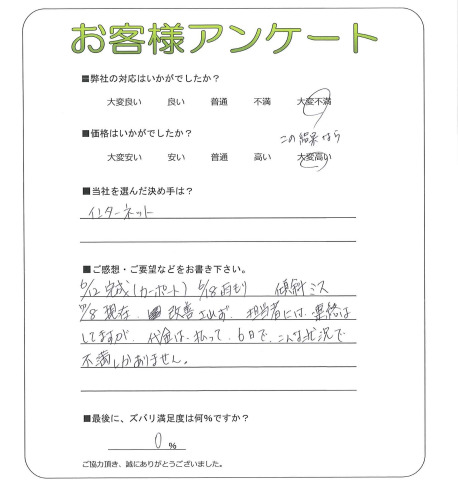 お客様アンケート
■弊社の対応はいかがでしたか？
大変良い 良い 普通 不満 大変不満
■価格はいかがでしたか？
この結果なら
大変安い 安い 普通 高い 大変高い
■当社を選んだ決め手は？
インターネット
■ご感想・ご要望などをお書き下さい。
6/12 完成(カーポート) 6/18 雨もり 傾斜ミス
10/8 現在、改善されず、担当者には、連絡は
してますが、代金は、払って、6日で、こんな状況で
不満しかありません。
■最後に、ズバリ満足度は何％ですか？
0 %
ご協力頂き、誠にありがとうございました。